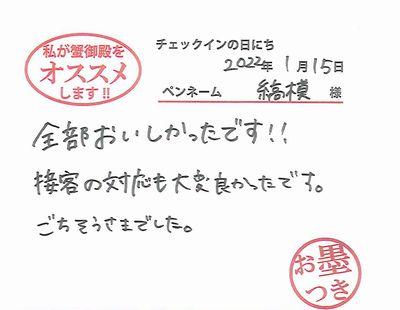 私が蟹御殿を
オススメ
します!!
チェックインの日にち
2022年 1月15日
ペンネーム 縞模 様
全部おいしかったです!!
接客の対応も大変良かったです。
ごちそうさまでした。
お墨
つき